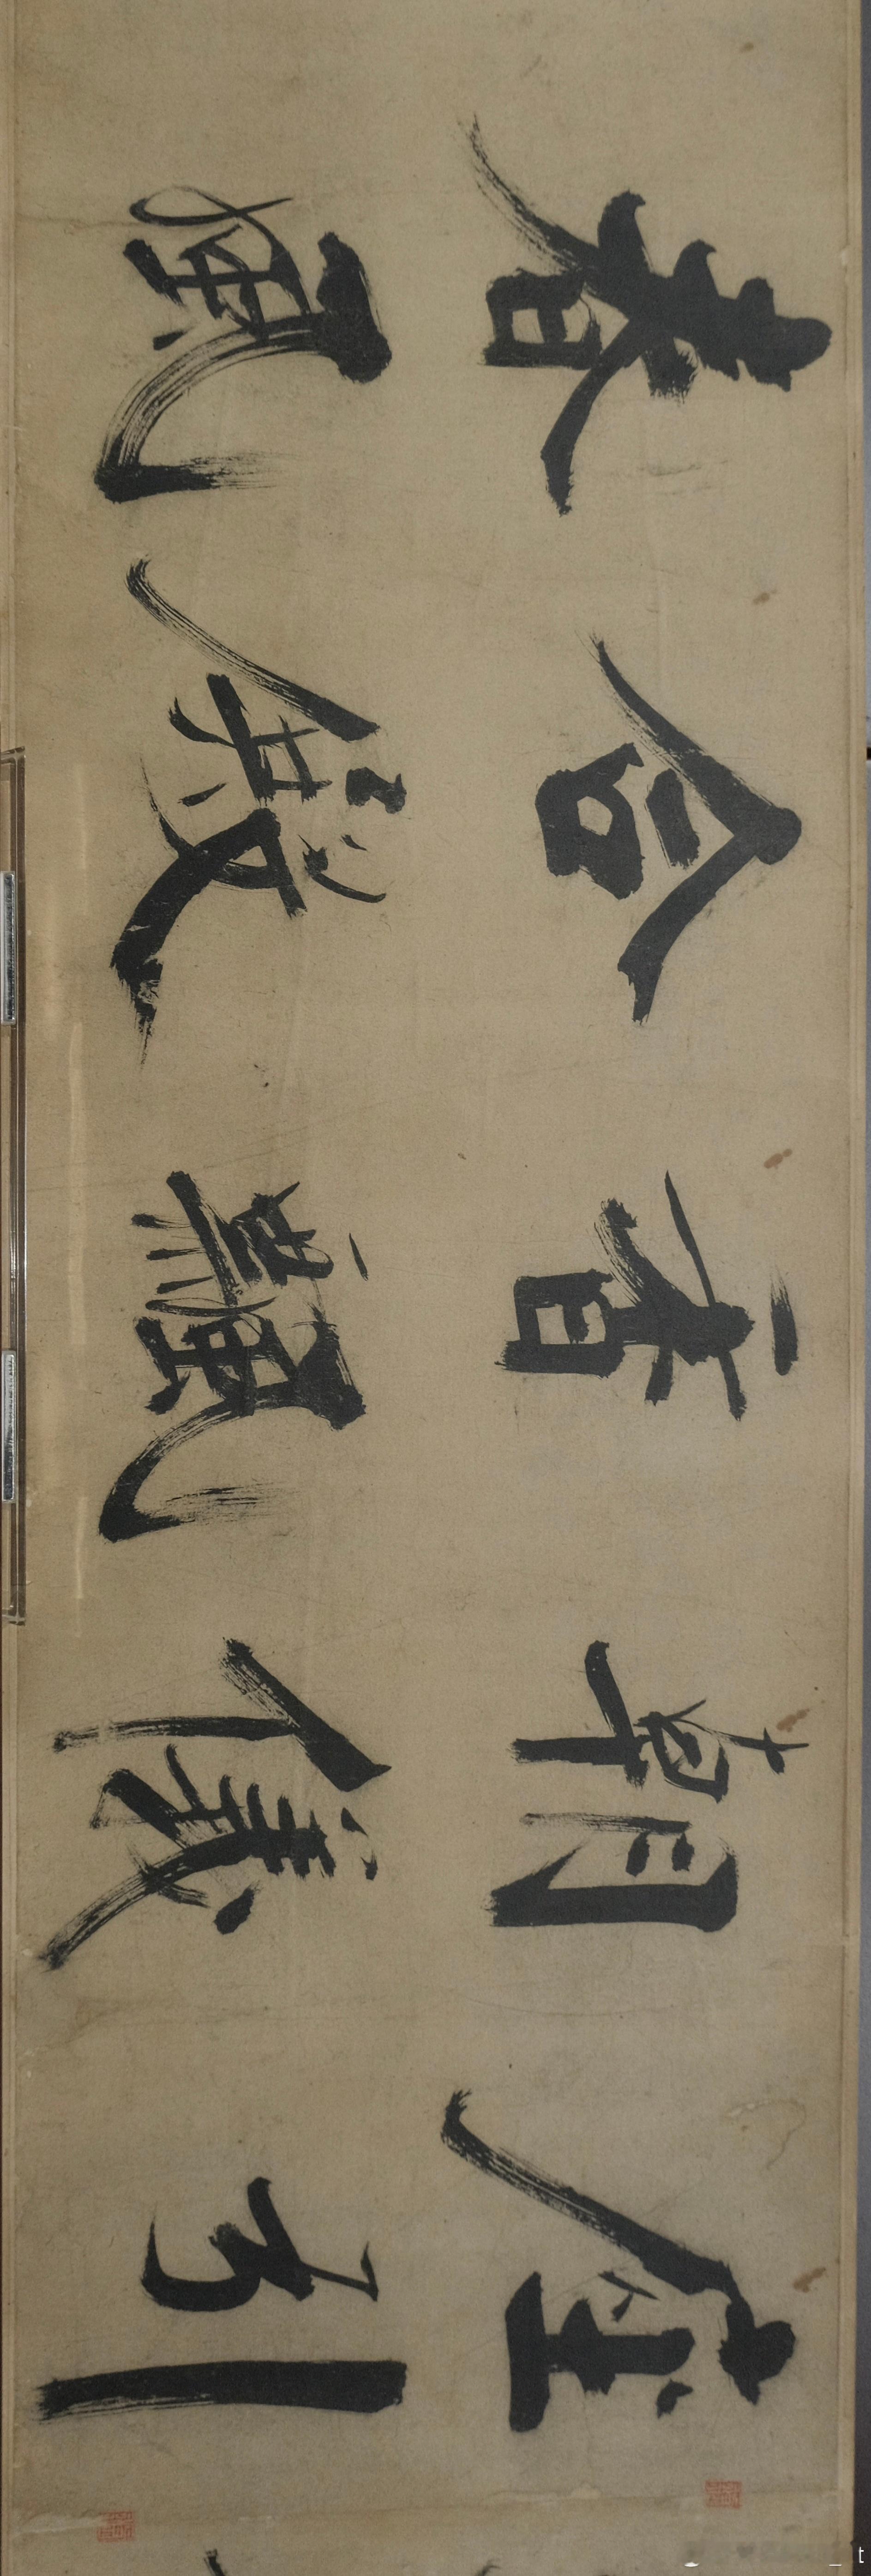 座引
朝儀
香飄
合殿
春風